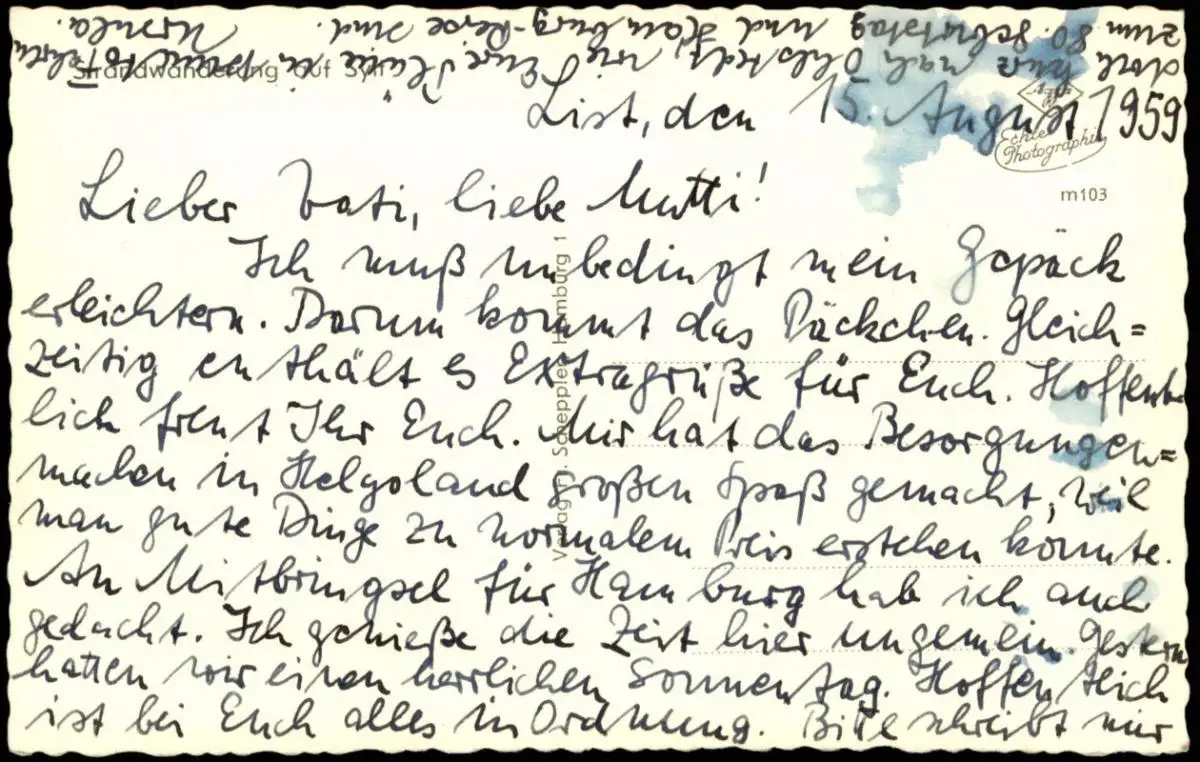 Strandwanderung auf Sylt
List, den 15. August 1959
Echte
Photographie
m103
Lieber Vati, liebe Mutti!
Ich muß unbedingt mein Gepäck
erleichtern. Darum kommt das Päckchen. Gleich=
zeitig enthält es Extragrüße für Euch. Hoffent=
lich freut Ihr Euch. Mir hat das Besorgungen=
machen in Helgoland großen Spaß gemacht, weil
man gute Dinge zu normalem Preis erstehen konnte.
An Mitbringsel für Hamburg hab ich auch
gedacht. Ich genieße die Zeit hier ungemein. Gestern
hatten wir einen herrlichen Sonnentag. Hoffentlich
ist bei Euch alles in Ordnung. Bitte schreibt mir
doch kurz nach Ohlstedt, wie Eure Pläne in puncto Fahrt
zum 80. Geburtstag und Hamburg-Reise sind.
Ursula.
Hamburg 1